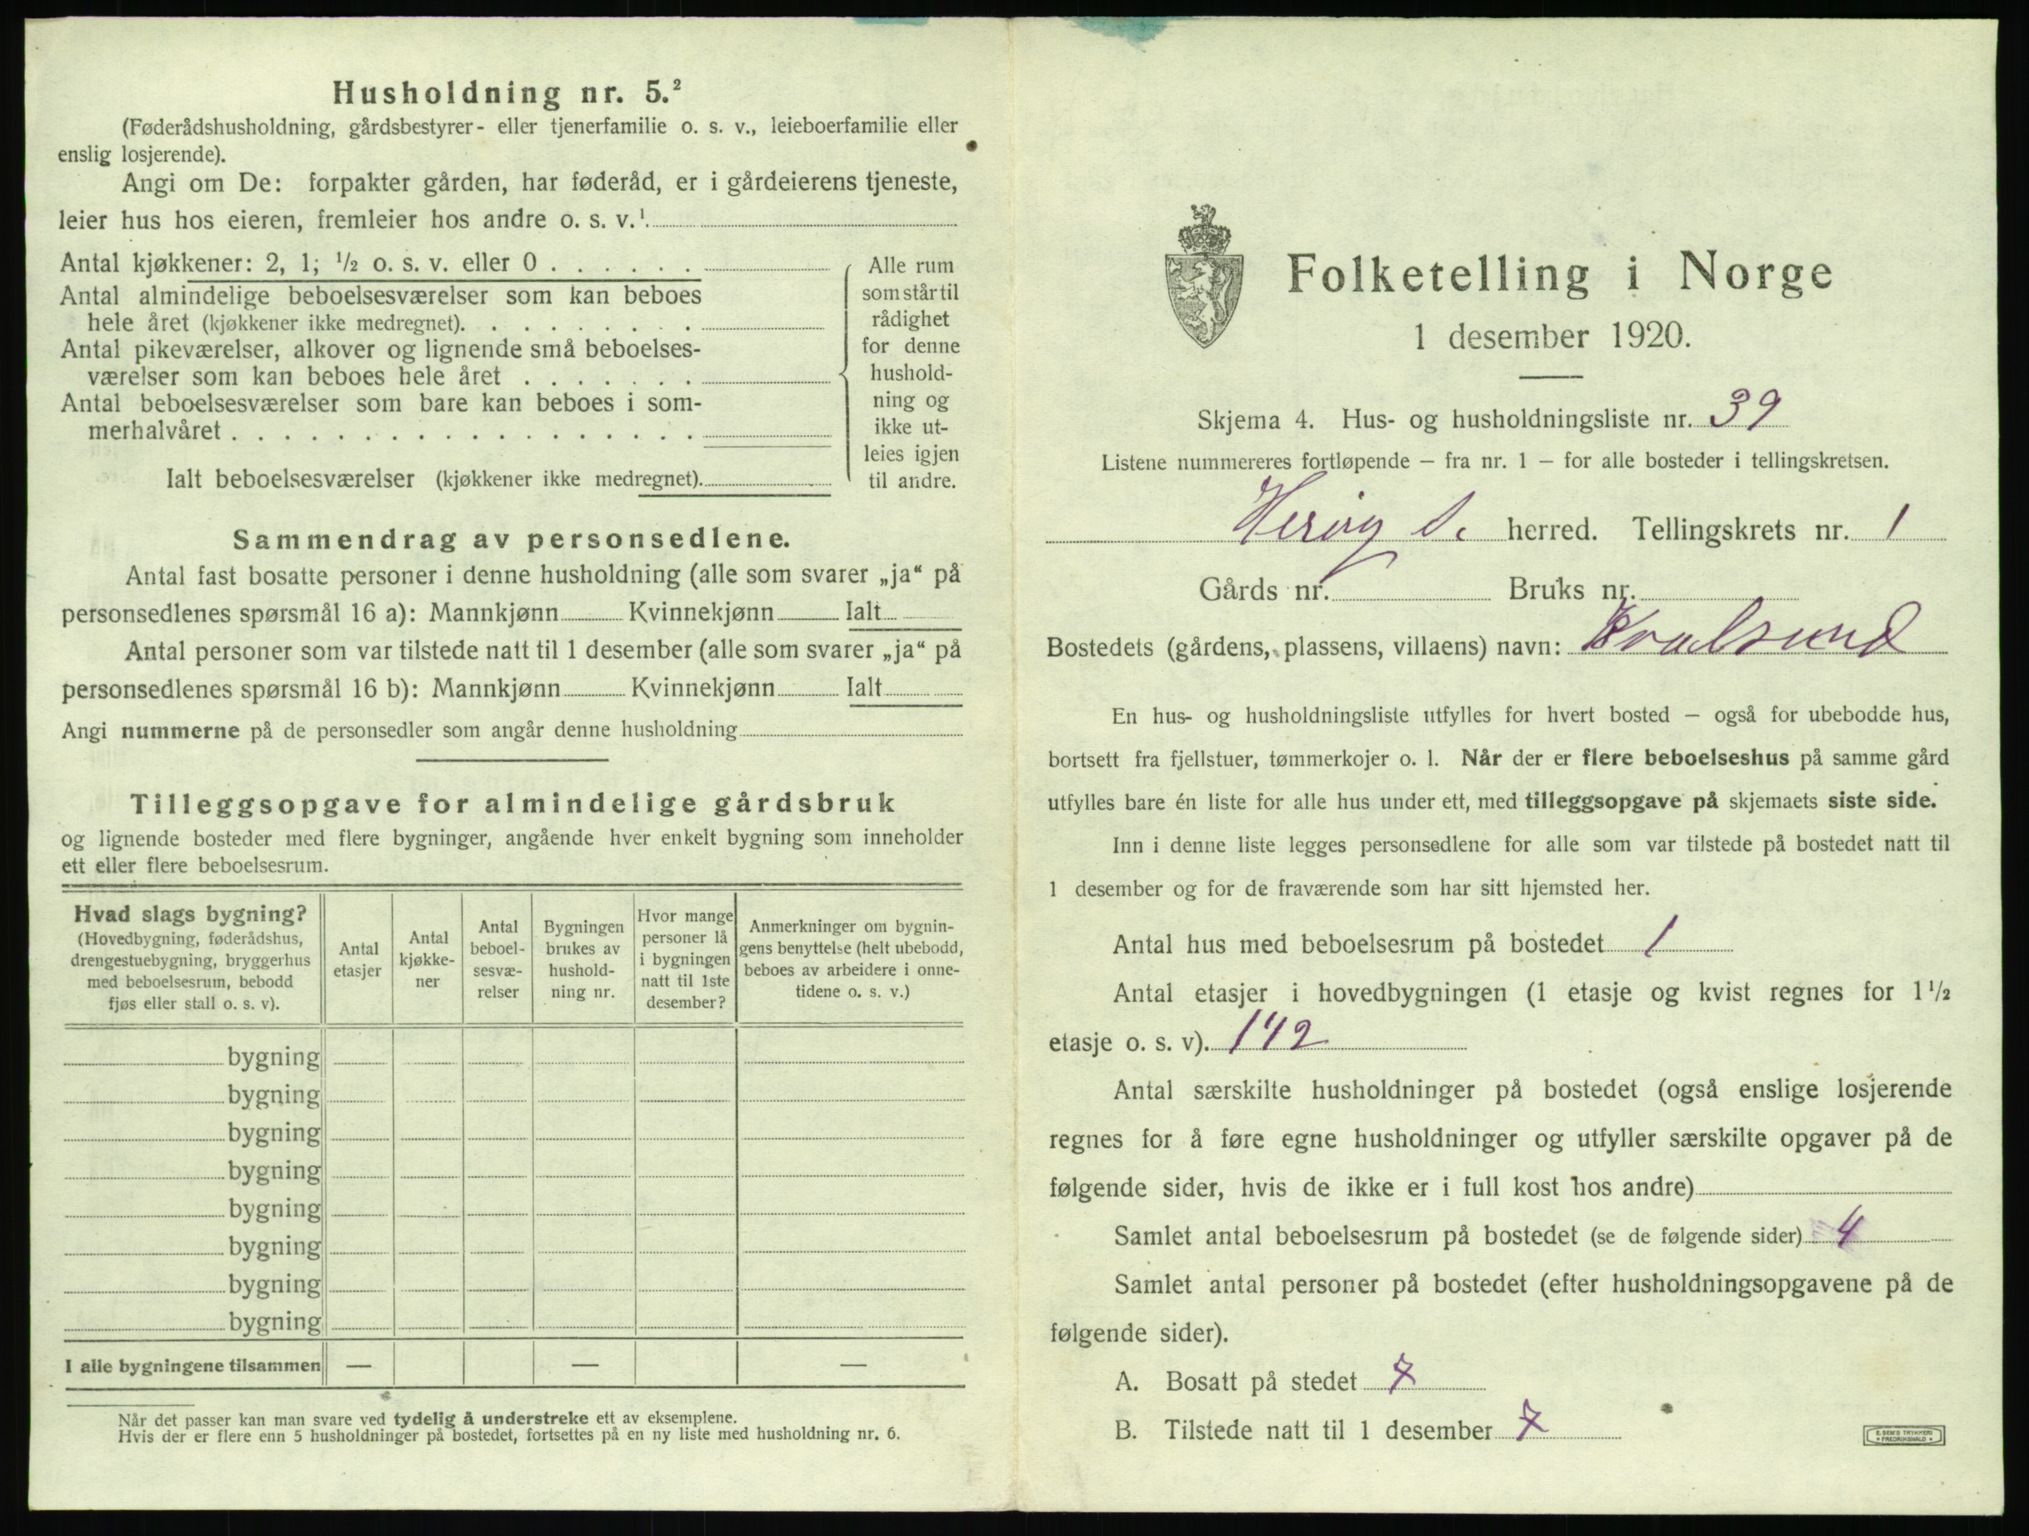 Husholdning nr. 5.²
(Føderådshusholdning, gårdsbestyrer- eller tjenerfamilie o. s. v., leieboerfamilie eller
enslig losjerende).
Angi om De: forpakter gården, har føderåd, er i gårdeierens tjeneste,
leier hus hos eieren, fremleier hos andre o. s. v.¹
Antal kjøkkener: 2, 1; ½ o. s. v. eller 0 . . . . . .
Antal almindelige beboelsesværelser som kan beboes
hele året (kjøkkener ikke medregnet). . . . . . . . .
Antal pikeværelser, alkover og lignende små beboelses-
værelser som kan beboes hele året . . . . . . .
Antal beboelsesværelser som bare kan beboes i som-
merhalvåret . . . . . . . . . . . . . . . . . .
Ialt beboelsesværelser (kjøkkener ikke medregnet).
Alle rum
som står til
rådighet
for denne
hushold-
ning og
ikke ut-
leies igjen
til andre.
Sammendrag av personsedlene.
Antal fast bosatte personer i denne husholdning (alle som svarer „ja“ på
personsedlenes spørsmål 16 a): Mannkjønn Kvinnekjønn Ialt
Antal personer som var tilstede natt til 1 desember (alle som svarer „ja“ på
personsedlenes spørsmål 16 b): Mannkjønn Kvinnekjønn Ialt
Angi nummerne på de personsedler som angår denne husholdning
Tilleggsopgave for almindelige gårdsbruk
og lignende bosteder med flere bygninger, angående hver enkelt bygning som inneholder
ett eller flere beboelsesrum.
Hvad slags bygning?
(Hovedbygning, føderådshus,
drengestuebygning, bryggerhus
med beboelsesrum, bebodd
fjøs eller stall o. s. v).
Antal
etasjer
Antal
kjøkke-
ner
Antal
beboel-
sesvæ-
relser
Bygningen
brukes av
hushold-
ning nr.
Hvor mange
personer lå
i bygningen
natt til 1ste
desember?
Anmerkninger om bygnin-
gens benyttelse (helt ubebodd,
beboes av arbeidere i onne-
tidene o. s. v.)
bygning
bygning
bygning
bygning
bygning
bygning
bygning
bygning
I alle bygningene tilsammen — — —
Når det passer kan man svare ved tydelig å understreke ett av eksemplene.
Hvis der er flere enn 5 husholdninger på bostedet, fortsettes på en ny liste med husholdning nr. 6.
Folketelling i Norge
1 desember 1920.
Skjema 4. Hus- og husholdningsliste nr. 39
Listene nummereres fortløpende – fra nr. 1 – for alle bosteder i tellingskretsen.
Herøy S. herred. Tellingskrets nr. 1
Gårds nr. Bruks nr.
Bostedets (gårdens, plassens, villaens) navn: Kvalsund
En hus- og husholdningsliste utfylles for hvert bosted – også for ubebodde hus,
bortsett fra fjellstuer, tømmerkojer o. l. Når der er flere beboelseshus på samme gård
utfylles bare én liste for alle hus under ett, med tilleggsopgave på skjemaets siste side.
Inn i denne liste legges personsedlene for alle som var tilstede på bostedet natt til
1 desember og for de fraværende som har sitt hjemsted her.
Antal hus med beboelsesrum på bostedet 1
Antal etasjer i hovedbygningen (1 etasje og kvist regnes for 1½
etasje o. s. v). 1½
Antal særskilte husholdninger på bostedet (også enslige losjerende
regnes for å føre egne husholdninger og utfyller særskilte opgaver på de
følgende sider, hvis de ikke er i full kost hos andre)
Samlet antal beboelsesrum på bostedet (se de følgende sider) 4
Samlet antal personer på bostedet (efter husholdningsopgavene på de
følgende sider).
A. Bosatt på stedet 7
B. Tilstede natt til 1 desember 7
E. SEM'S TRYKKERI
FREDRIKSHALD